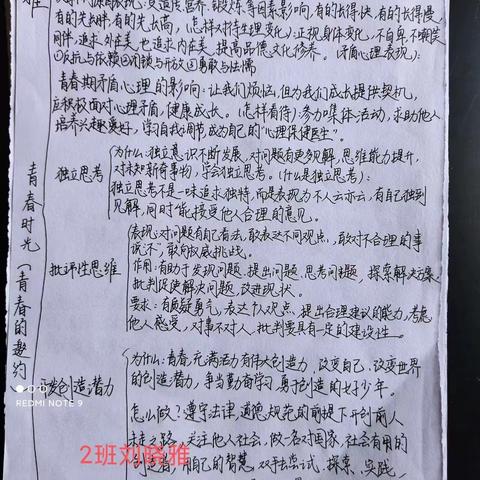 有的先胖,有的先长高,(怎样对待生理变化)正视身体变化,不自卑不嘲笑
同伴,追求外在美,也追求内在美,提高品德文化修养。(矛盾心理表现):
①反抗与依赖②闭锁与开放③勇敢与怯懦
青春期矛盾心理的影响:让我们烦恼,但为我们成长提供契机,
应积极面对心理矛盾,健康成长。(怎样看待)参加集体活动,求助他人
培养兴趣爱好,学习自我调节,成为自己的"心理保健医生"。
青春时光(青春的邀约)
独立思考
为什么:独立意识不断发展,对问题有更多见解,思维能力提升,
对未知新奇事物,学会独立思考。(什么是独立思考):
独立思考不是一味追求独特,而是表现为不人云亦云,有自己独到
见解,同时能接受他人合理的意见。
批评性思维
表现:对问题有自己看法,敢表达不同观点,敢对不合理的事
说"不",敢向权威挑战。
作用:有助于发现问题、提出问题、思考问题,探索解决方案
批判促使解决问题、改进现状。
要求:有质疑勇气,表达个人观点、提出合理建议的能力,考虑
他人感受,对事不对人,批判要具有一定的建设性。
开发创造潜力
为什么:青春充满活力有伟大创造力,改变自己、改变世界
的创造潜力,争当勤奋学习、勇于创造的好少年。
怎么做?遵守法律、道德规范的前提下开创前人
未走之路,关注他人社会,做一名对国家,社会有用的
创造者,用自己的智慧,双手尝试、探索、实践,
REDMI NOTE 9
2班刘晓雅